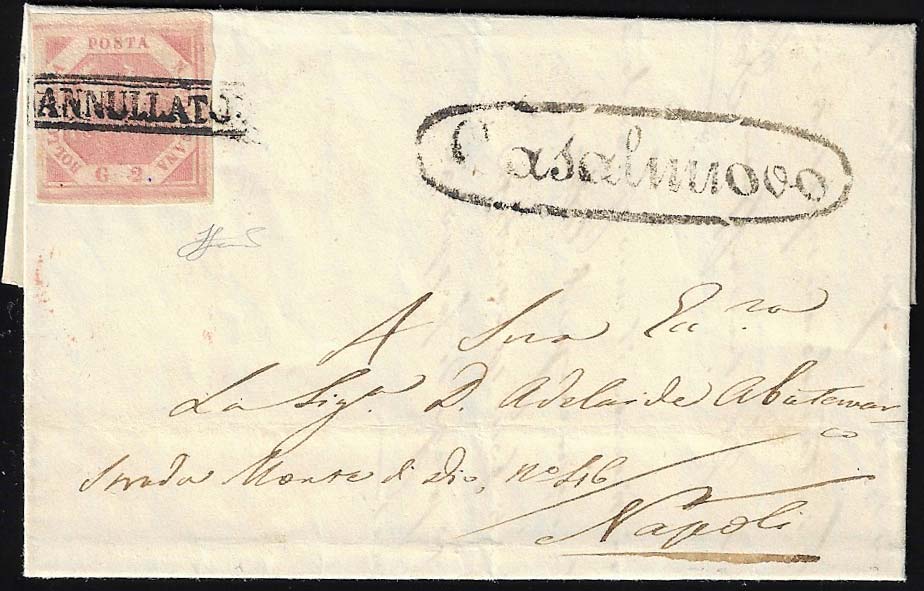 POSTA
ANNULLATO
G. 2.
Casalnuovo
A Sua Ecc.za
La Sig.a D. Adelaide Abatemar
co
Strada Monte di Dio, No
Napoli